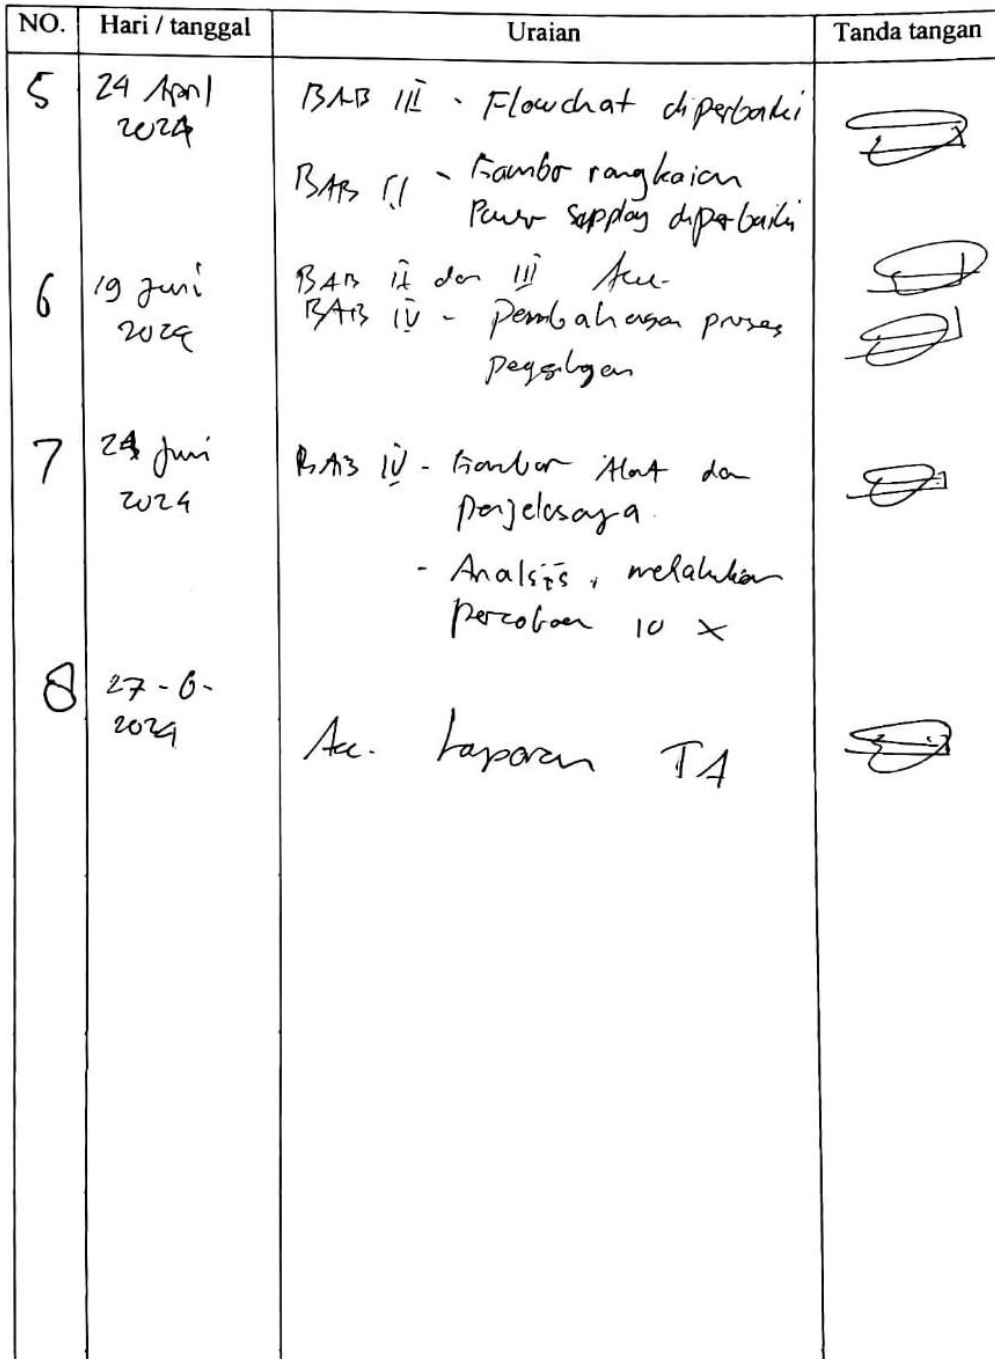 NO. Hari / tanggal Uraian Tanda tangan
5 24 April BAB III - Flowchat diperbaiki
2024
BAB II - Gambar rangkaian
Power supplay diperbaiki
6 19 Juni BAB II dan III Acc.
2024 BAB IV - Pembahasan proses
7 24 Juni BAB IV - Gambar Alat dan
2024 penjelasanya.
- Analsis, melakukan
percobaan 10 x
8 27-6-
2024
Acc. Laporan TA